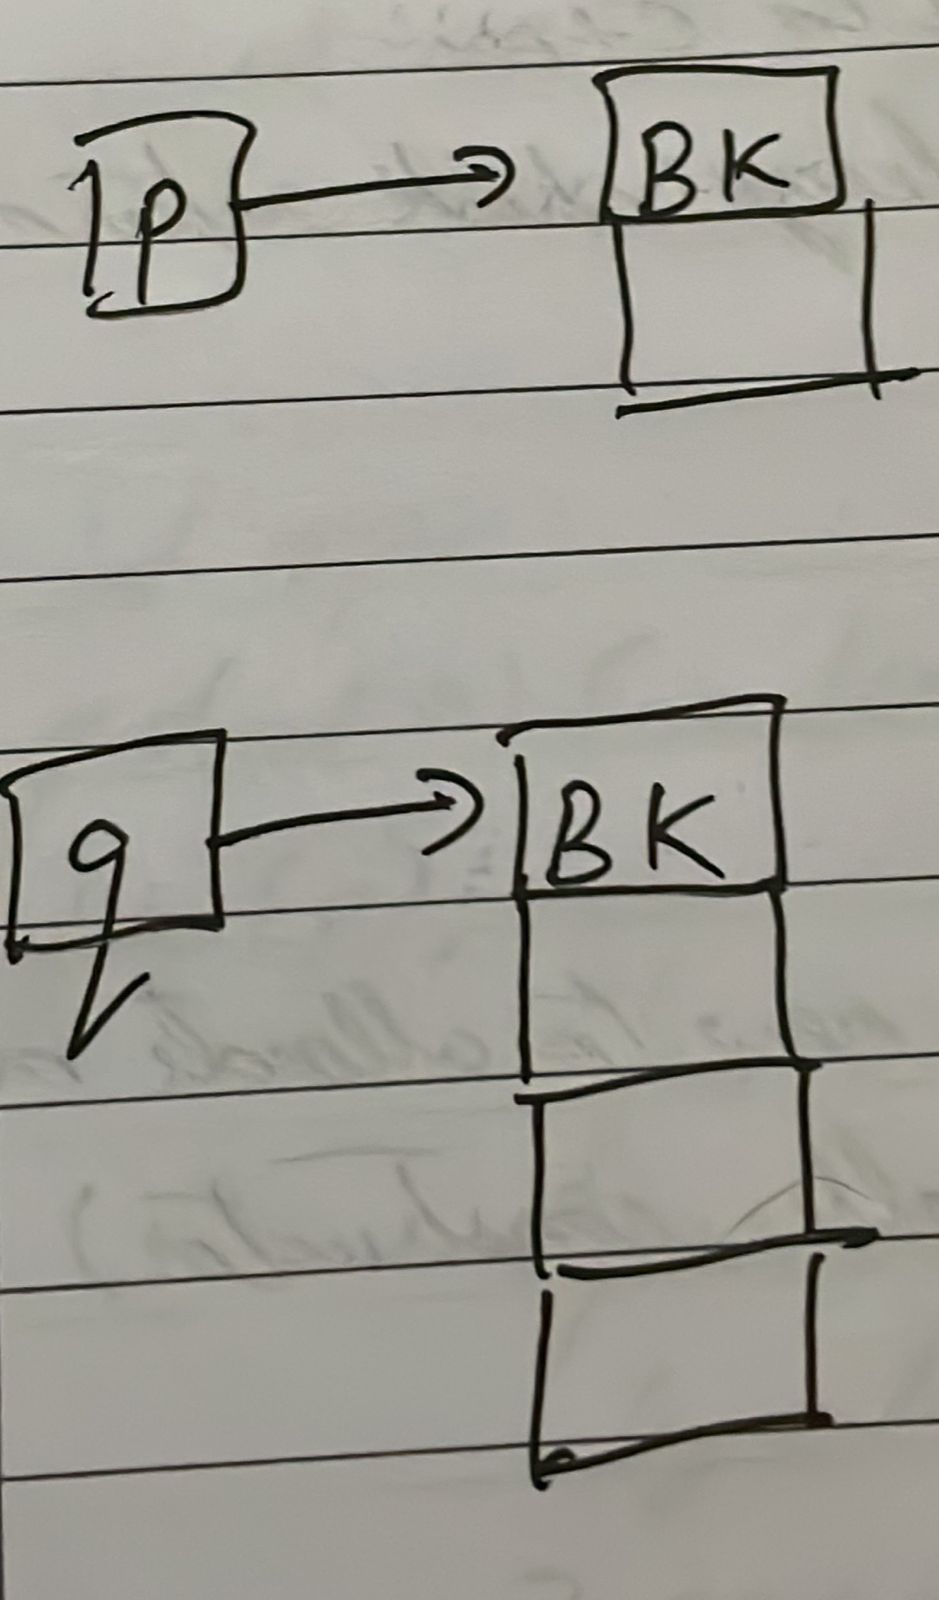 P BK
q BK